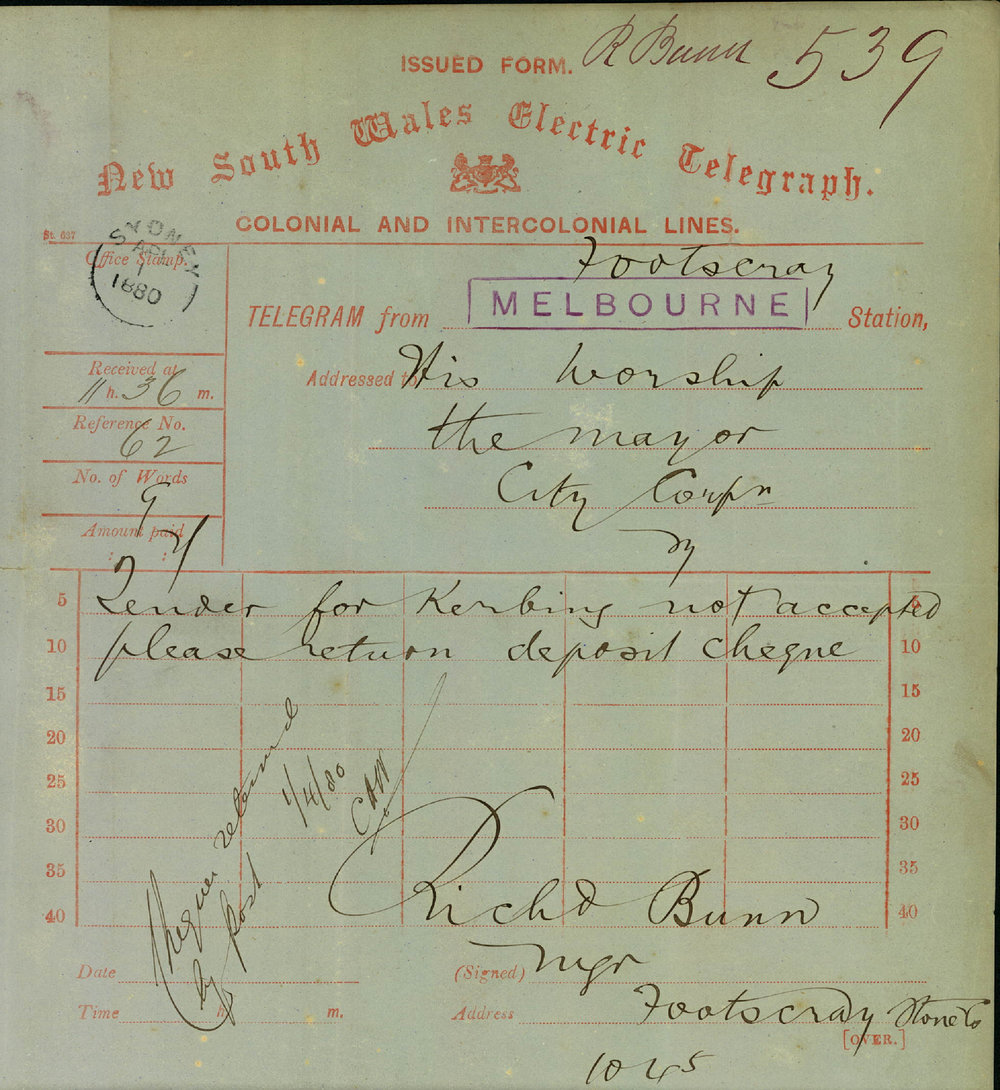 ISSUED FORM. R Bunn 539
New South Wales Electric Telegraph.
COLONIAL AND INTERCOLONIAL LINES.
St. 637
Office Stamp.
SYDNEY
1
1880
Footscray
TELEGRAM from MELBOURNE Station,
Received at
11 h. 36 m.
Addressed to His Worship
Reference No.
62
the mayor
No. of Words
9
City Corpn
Amount paid
: :
5 Tender for Kerbing not accepted 5
10 please return deposit cheque 10
15 15
20 20
25 25
30 30
35 35
40 40
Cheque returned
by post
1/4/80
Richd Bunn
Date (Signed) mgr
Time h. m. Address Footscray Stone Co
[OVER.]
1045